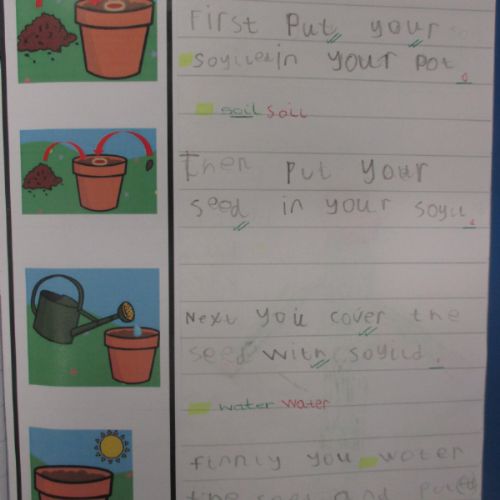 First Put your
soyil in your pot.
soil soil
Then put your
seed in your soyu.
Next you cover the
seed with soyild.
water water
finniy you water
the and put